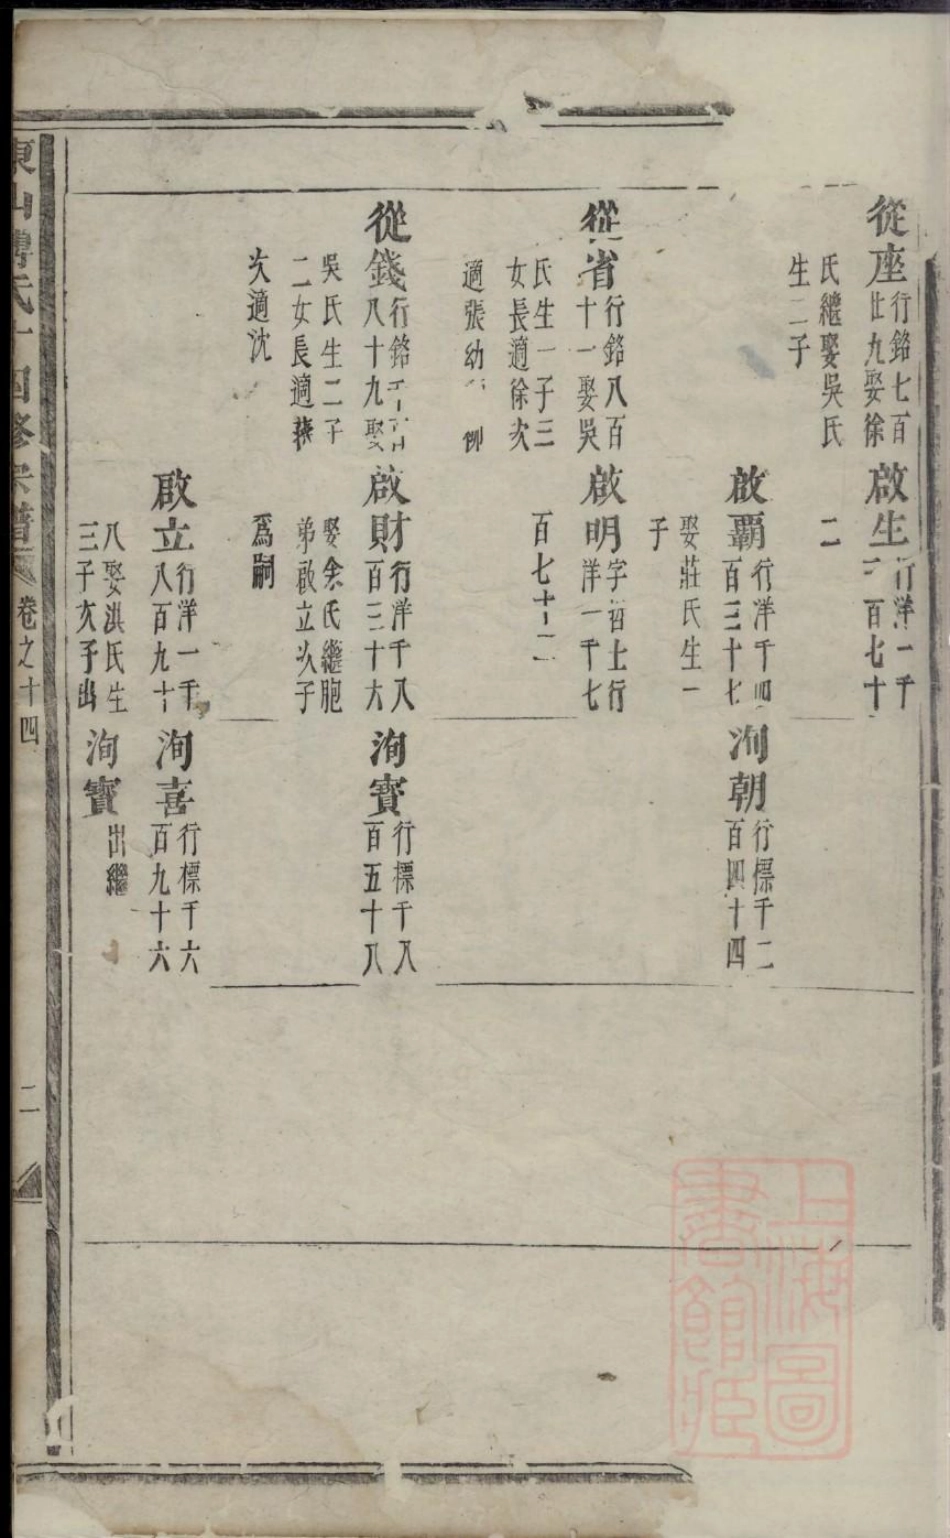 從座
行銘七百
廿九娶徐
氏繼娶吳氏
生二子
啟生
行洋一千
一百七十
二
啟霸
行洋千四
百三十七
娶莊氏生一
子
洵朝
行標千二
百四十四
從省
行銘八百
十一娶吳
氏生一子三
女長適徐次
適張幼 柳
啟明
字 上行
洋一千七
百七十二
從錢
行銘
八十九娶
吳氏生二子
二女長適蔡
次適沈
啟財
行洋千八
百三十六
娶余氏繼胞
弟啟立次子
爲嗣
洵寳
行標千八
百五十八
啟立
行洋一千
八百九十
八娶洪氏生
三子次子出
洵喜
行標千六
百九十六
洵寳
出繼
東山 氏十四修宗譜
卷之十四
二
上海圖
書館藏